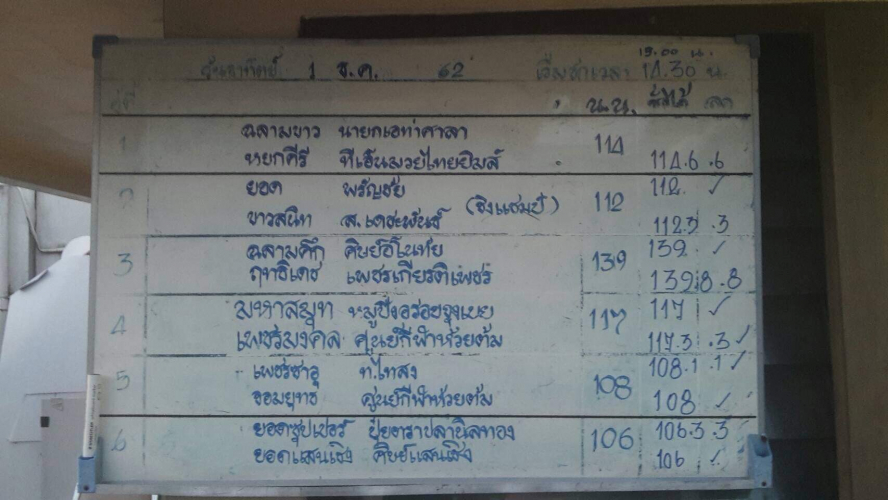 วันอาทิตย์ 1 ธ.ค. 62 เริ่มชกเวลา 14.30 น.
13.00 น.
คู่ที่ น.น. ชั่งได้ ลด
1 ฉลามขาว นายกเอท่าศาลา 114
หยกคีรี ทีเอ็นมวยไทยยิมส์ 114.6 .6
2 ยอด พรัญชัย 112 112 ✓
ขาวสนิท ส.เดชะพันธ์ (ชิงแชมป์) 112.3 .3
3 ฉลามศึก 139 139 ✓
ฤทธิเดช เพชรเกียรติเพชร 139.8 .8
4 มหาสมุท หมูปิ้งอร่อยจุงเบย 117 117 ✓
เพชรมงคล ศูนย์กีฬาห้วยต้ม 117.3 .3 ✓
5 เพชรซาอุ ท.ไทสง 108 108.1 .1 ✓
จอมยุทธ ศูนย์กีฬาห้วยต้ม 108 ✓
6 ยอดซุปเปอร์ ปุ๋ยตราปลานิลทอง 106 106.3 .3 ✓
ยอดแสนเชิง ศิษย์แสนเชิง 106 ✓